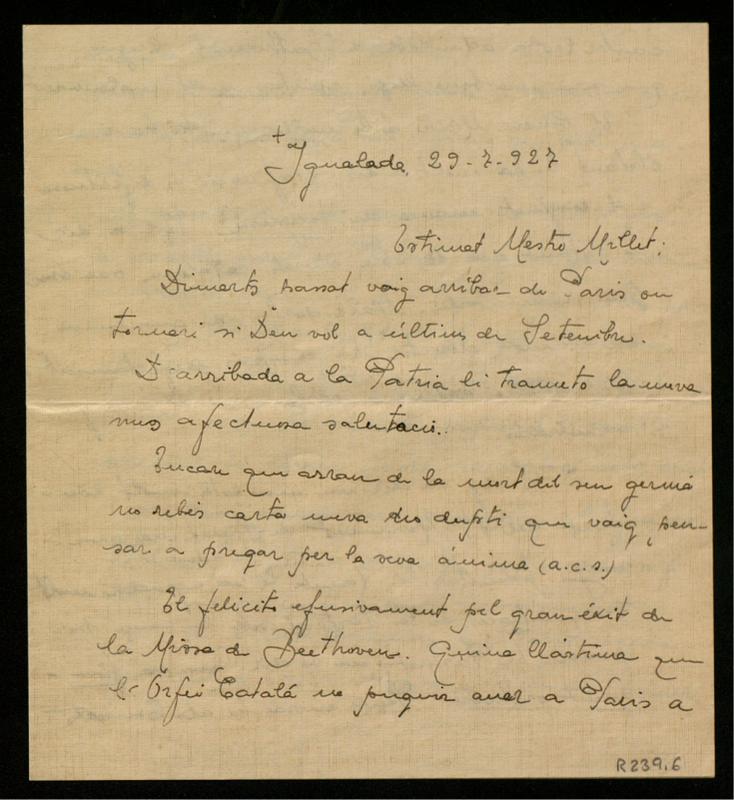 +
Igualada, 29-7-927
Estimat Mestre Millet:
Dimarts passat vaig arribar de París on
tornaré si Deu vol a últims de Setembre.
D'arribada a la Patria li trameto la meva
mes afectuosa salutació.
Encara que arran de la mort del seu germá
no rebés carta meva no dupti que vaig pen-
sar a pregar per la seva ánima (a.c.s.)
El felicito efusivament pel gran éxit de
la Missa de Beethoven. Quina llástima que
l'Orfeó Catalá no pugui anar a París a
R239.6